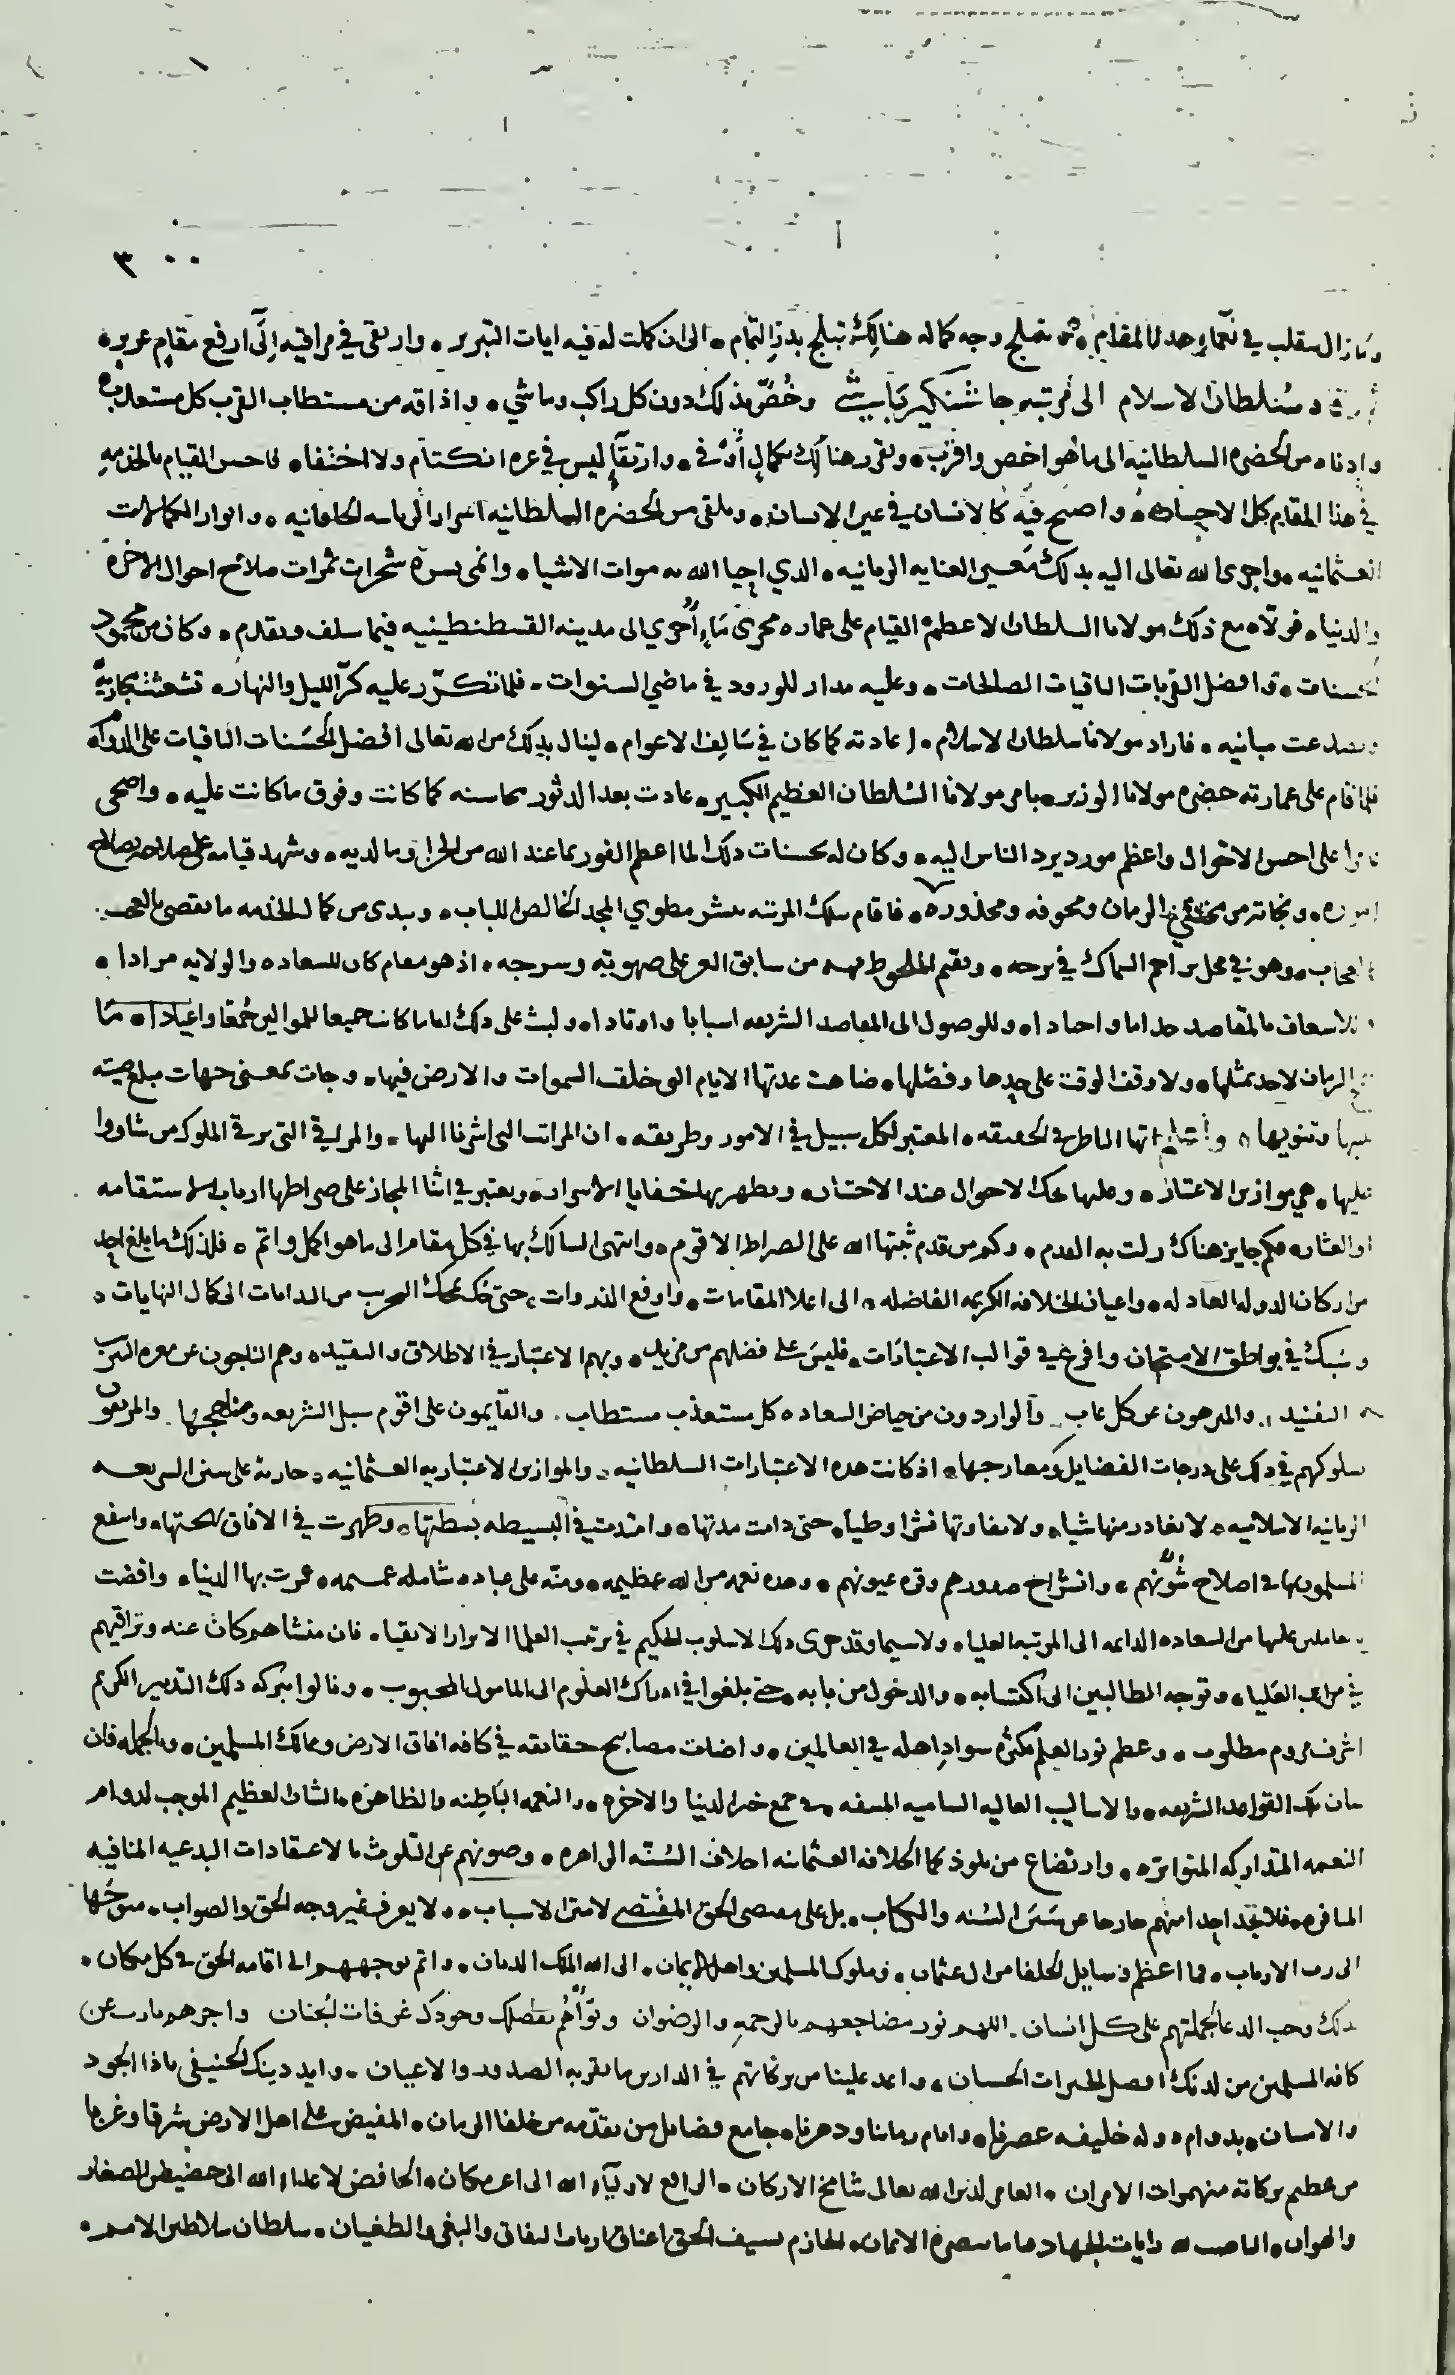 ٣٠٠
وما زال يتقلب في نعماء هذا المقام، ثم تبلج وجه كماله هنالك تبلج بدر التمام، الى ان كملت له فيه ايات التبريز، وارتقى في مراقيه الى ارفع مقام عزيز،
سلطان الاسلام الى مرتبه جاشنكير باشي وخص بذلك دون كل راكب وماشي، واذاقه من مستطاب القرب كل مستعذب
وادناه من الحضره السلطانيه الى ما هو اخص واقرب، وتقرر هنالك بكمال اوفى، وارتقا ليس في غره انكتام ولا اختفا، لما حسن القيام بالخدمه
في هذا المقام كل الاحسان، واصبح فيه كالانسان في عين الانسان، وتلقى من الحضره السلطانيه اسرار الرياسه الخاقانيه، وانوار الكمالات
العثمانيه، واجرى الله تعالى اليه بذلك معين العنايه الربانيه، الذي احيا الله به موات الاشيا، وانمى بسره شجرات ثمرات صلاح احوال الاخره
والدنيا، فولاه مع ذلك مولانا السلطان الاعظم القيام على عماره مجرى ماء اجري الى مدينه القسطنطينيه فيما سلف وتقدم، وكان من محمود
الحسنات، وافضل القربات الباقيات الصالحات، وعليه مدار للورود في ماضي السنوات، فلما تكرر عليه كر الليل والنهار، تشعثت مجاريه
وتصدعت مبانيه، فاراد مولانا سلطان الاسلام، اعادته كما كان في سالف الاعوام، لينال بذلك من الله تعالى افضل الحسنات الباقيات على الدوام
فلما قام على عمارته حضره مولانا الوزير، بامر مولانا السلطان العظيم الكبير، عادت بعد الدثور محاسنه كما كانت وفوق ما كانت عليه، واضحى
على احسن الاحوال واعظم مورد يرد الناس اليه، وكان له بحسنات ذلك الما اعظم الفوز بما عند الله من الجزا وما لديه، وشهد قيامه على صلاحه بصلاح
اموره، ونجاته من الزمان ومخوفه ومحذوره، فاقام بتلك المرتبه ينشر مطوي المجد الخالص اللباب، ويبدى من كمال الخدمه ما يقضي بالعجب
وهو في محل يزاحم السماك في برجه، ويقيم الملحوظ منه من سابق العز على صهوته وسرجه، اذ هو مقام كان للسعاده والولايه مرادا،
وللاسعاف بالمقاصد واجنادا، وللوصول الى المقاصد الشريفه اسبابا واوتادا، ولبث على ذلك اياما كانت جميعا للموالين جمعا واعيادا، ما
الزمان لاحد بمثلها، ولا وقف الوقت على حدها وفصلها، ضاهت عدتها الايام التي خلقت السموات والارض فيها، وجات بمعنى جهات مبلغ صيته
وتنويها، ايها الناظر في الحقيقه، المعتبر لكل سبيل في الامور وطريقه، ان المراتب التي اشرنا اليها، والمراقي التي يرقي الملوك من شاوا
عليها، هي موازين الاعتبار، وعليها محك الاحوال عند الاختبار، ويظهر بها خفايا الاسرار، ويعتبر في اثنا المجاز على صراطها ارباب الاستقامه
او العثار، فكم جايز هناك زلت به القدم، وكم من قدم ثبتها الله على الصراط الاقوم، وانتهى السالك بها في كل مقام الى ما هو اكمل واتم، فلذلك ما بلغ احد
من اركان الدوله العادله، واعيان الخلافه الكريمه الفاضله، الى اعلا المقامات، وارفع الذروات، حتى حك بمحك التجريب من البدايات الى كمال النهايات،
وسبك في بواطق الامتحان وافرغ في قوالب الاعتبارات، فليس على فضلهم من مزيد، وبهم الاعتبار في الاطلاق والتقييد، وهم الناجون عن معره
التفنيد، والمنزهون عن كل عاب، والواردون من حياض السعاده كل مستعذب مستطاب، والقايمون على اقوم سبل الشريعه ومناهجها، والمرتقون
بسلوكهم في ذلك على درجات الفضايل ومعارجها، اذ كانت هذه الاعتبارات السلطانيه، والموازين الاعتباريه العثمانيه، جاريه على سنن الشريعه
الربانيه الاسلاميه، لا تغادر منها شيا، ولا تفاوتها نشرا وطيا، حتى دامت مدتها، وامتدت في البسيطه بسطتها، وظهرت في الافاق بهجتها، وانتفع
المسلمون بها في اصلاح شؤنهم، وانشراح صدورهم وقره عيونهم، وهذه نعمه من الله عظيمه، ومنه على عباده شامله عميمه، عمرت بها الدنيا، وافضت
بعاملين عليها من السعاده الدايمه الى المرتبه العليا، ولا سيما وقد جرى ذلك الاسلوب الحكيم في ترتيب العلما الابرار الاتقيا، فان منشاهم كان عنه وتراقيهم
في مراتب العليا، وتوجه الطالبين الى اكتسابه، والدخول من بابه، حتى بلغوا في ادراك العلوم الى المامول المحبوب، ونالوا ببركه ذلك التدبير الكريم
اشرف مروم مطلوب، وعظم نور العلم بكثره سواد اهله في العالمين، واضات مصابيح حقايقه في كافه افاق الارض وممالك المسلمين، وبالجمله فان
تلك القواعد الشريفه، والاساليب العاليه الساميه المنيفه، في جمع خير الدنيا والاخره، والنعمه الباطنه والظاهره، الشان العظيم الموجب لدوام
النعمه المتداركه المتواتره، وارتضاع من يلوذ بحما الخلافه العثمانيه اخلاف السنه الزاهره، وصونهم عن التلوث بالاعتقادات البدعيه المنافيه
المنافره، فلا تجد احدا منهم جارحا عن سنن السنه والكتاب، بل على مقتضى الحق المقتضي لامتن الاسباب، لا يعرف غير وجه الحق والصواب، متوجها
الى رب الارباب، فما اعظم وسايل الخلفا من ال عثمان، وملوك المسلمين واهل الايمان، الى الله الملك الديان، واتم توجههم الى اقامه الحق في كل مكان،
بذلك وجب الدعا لجملتهم على كل انسان، اللهم نور مضاجعهم بالرحمه والرضوان وبواهم بفضلك وجودك غرفات الجنان واجزهم يارب عن
كافه المسلمين من لدنك افضل الخيرات الحسان، واعد علينا من بركاتهم في الدارين ما تقر به الصدور والاعيان، وايد دينك الحنيفي ياذا الجود
والاحسان، بدوام دوله خليفه عصرنا، وامام زماننا ودهرنا، جامع فضايل من تقدمه من خلفا الزمان، المفيض على اهل الارض شرقا وغربا
من عظيم بركاته الامان، العامر لدين الله تعالى شامخ الاركان، الرافع لاولياء الله الى اعز مكان، الخافض لاعداء الله الى حضيض الصغار
والهوان، الناصب رايات الجهاد الايمان، الجازم بسيف الحق اعناق ارباب النفاق والبغي والطغيان، سلطان سلاطين الامم،